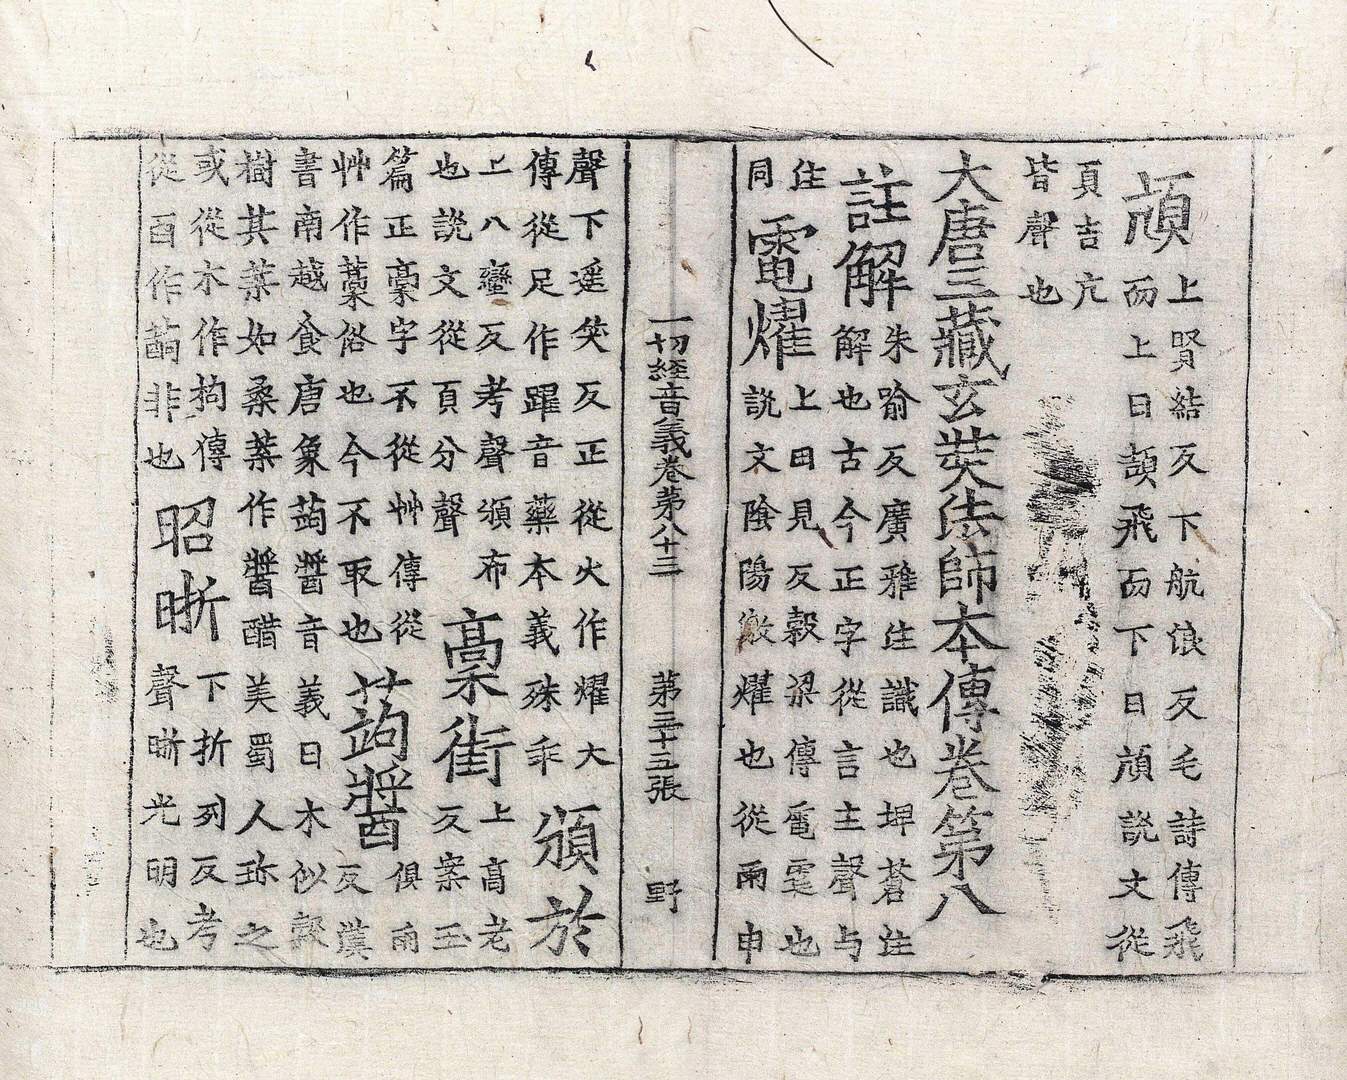 頏
上賢結反下航浪反毛詩傳飛
而上曰頡飛而下曰頏說文從
頁吉亢
皆聲也
大唐三藏玄奘法師本傳卷第八
註解
朱喻反廣雅注識也埤蒼注
解也古今正字從言主聲与
住
同
電燿
上田見反穀梁傳電霆也
說文陰陽激燿也從雨申
一切經音義卷第八十三 第三十五張 野
聲下遥笑反正從火作燿大
傳從足作躍音藥本義殊乖
頒於
上八蠻反考聲頒布
也說文從頁分聲
稾街
上高老
反案玉
篇正稾字不從艸傳從
艸作藁俗也今不取也
蒟醬
俱雨
反漢
書南越食唐蒙蒟醬音義曰木似穀
樹其葉如桑葉作醬醋美蜀人珎之
或從木作枸傳
從酉作蒟非也
昭晣
下折列反考
聲晣光明也